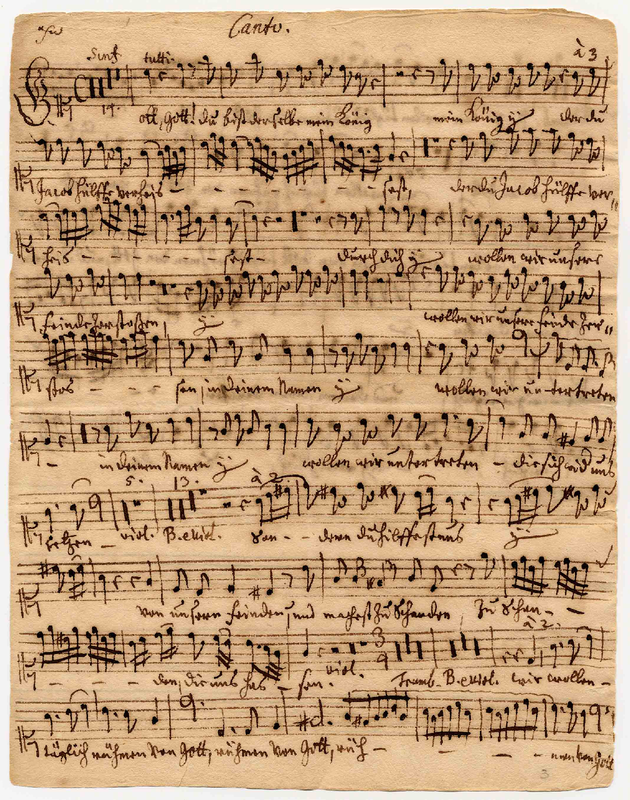 Canto.
Sinf. tutti à 3
19.
Gott, Gott! du bist derselbe mein König mein König ij der du
Jacob hülffe verheis - - - - - sest, der du Jacob hülffe ver-
heis - - - - - sest - durch dich ij wollen wir unsere
feinde zerstoßen, ij wollen wir unsere feinde zer-
stos - - - sen, in deinem Namen ij wollen wir untertreten
- in deinem Namen ij wollen wir untertreten - die sich wid uns
5. 13. à 2
setzen - viol. B. e viol. Son - - dern du hilffest uns ij
von unsern feinden, und machest zu Schanden, zu Schan - -
à 2.
- - - - den, die uns has - sen. viol. Tromb. B. e viol. wir wollen -
täglich rühmen von Gott, rühmen von Gott, rüh - - - men von Gott
3